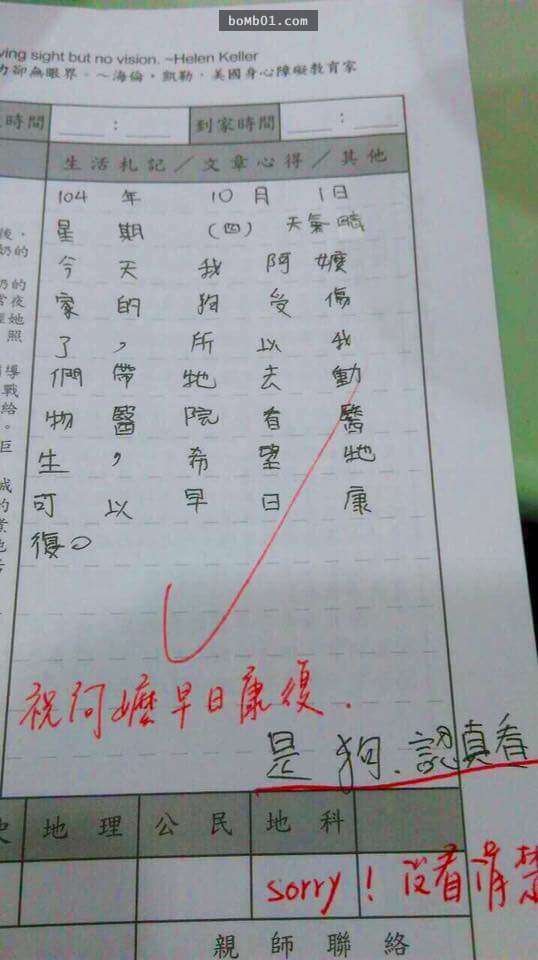 boMb01.com
ving sight but no vision. ~Helen Keller
力卻無眼界。～海倫．凱勒，美國身心障礙教育家
時間
：
到家時間
：
生活札記／文章心得／其他
104年10月1日
星期(四)天氣晴
今天我阿嬤
家的狗受傷
了，所以我
們帶牠去動
物醫院看醫
生，希望牠
可以早日康
復。
後，
奶的
奶的
常夜
她
照
導
戰
給
。
巨
成
的
祝阿嬤早日康復.
是狗、認真看
地理
公民
地科
sorry！沒看清楚
親師聯絡